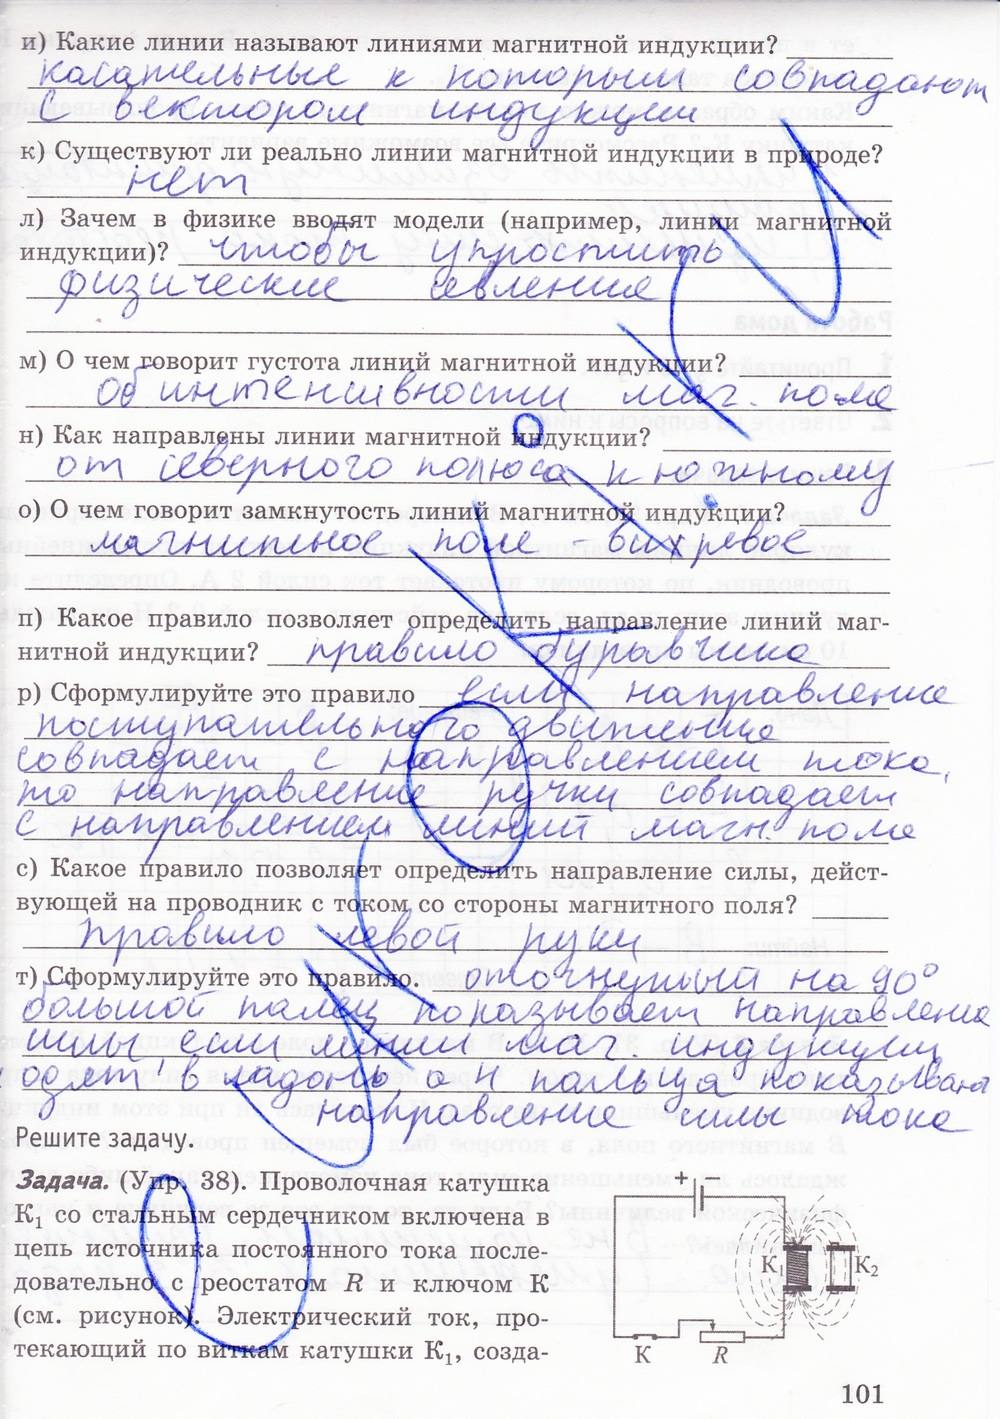 и) Какие линии называют линиями магнитной индукции?
касательные к которым совпадают
с вектором индукции
к) Существуют ли реально линии магнитной индукции в природе?
нет
л) Зачем в физике вводят модели (например, линии магнитной
индукции)? чтобы упростить
физические явления
м) О чем говорит густота линий магнитной индукции?
об интенсивности маг. поля
н) Как направлены линии магнитной индукции?
от северного полюса к южному
о) О чем говорит замкнутость линий магнитной индукции?
магнитное поле - вихревое
п) Какое правило позволяет определить направление линий маг-
нитной индукции? правило буравчика
р) Сформулируйте это правило если направление
поступательного движение
совпадает с направлением тока,
то направление ручки совпадает
с направлением линий магн. поля
с) Какое правило позволяет определить направление силы, дейст-
вующей на проводник с током со стороны магнитного поля?
правило левой руки
т) Сформулируйте это правило. отогнутый на 90°
большой палец показывает направление
силы, если линии маг. индукции
в ладонь а 4 пальца
направление силы тока
Решите задачу.
Задача. (Упр. 38). Проволочная катушка
К₁ со стальным сердечником включена в
цепь источника постоянного тока после-
довательно с реостатом R и ключом К
(см. рисунок). Электрический ток, про-
текающий по виткам катушки К₁, созда-
+
К₁
К₂
К
R
101